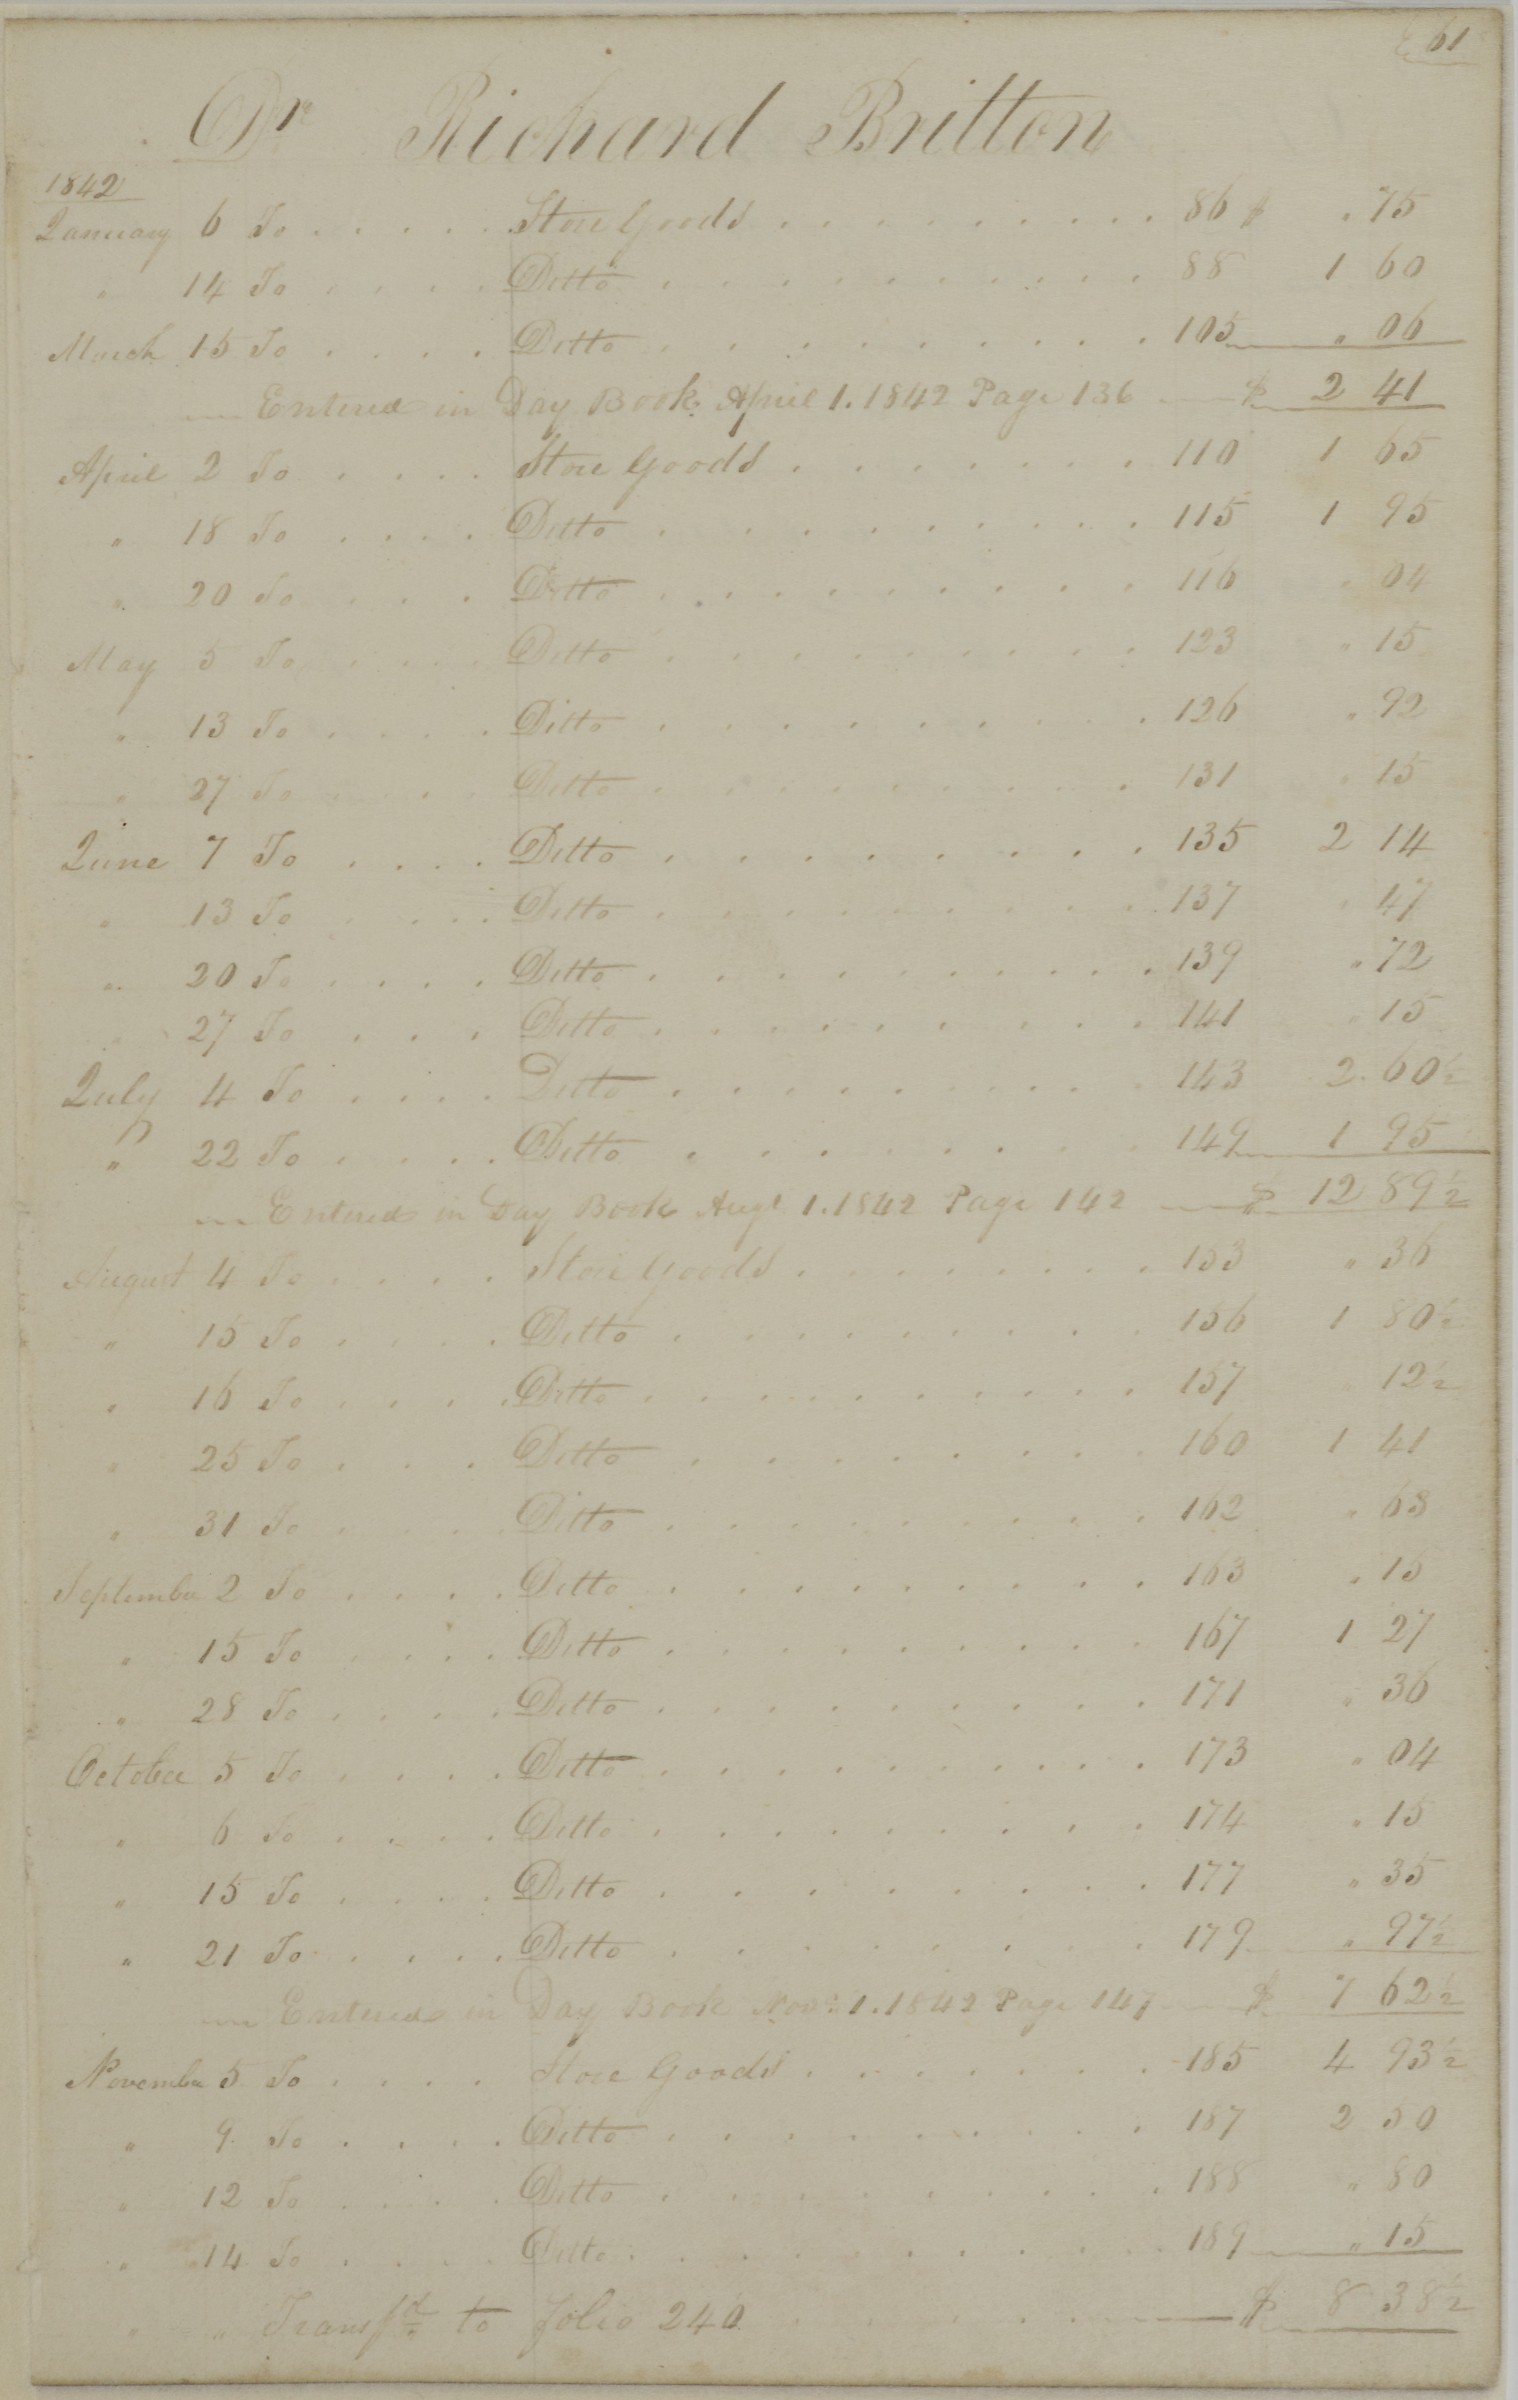 61
Dr Richard Britton
1842
January 6 To . . . . . Store Goods . . . . . . . . . 86 $ " 75
" 14 To . . . . Ditto . . . . . . . . . . 88 1 60
March 15 To . . . . Ditto . . . . . . . . . . 105 " 06
Entered in Day Book April 1. 1842 Page 136 $ 2 41
April 2 To . . . . Store Goods . . . . . . . 110 1 65
" 18 To . . . . Ditto . . . . . . . . . . 115 1 95
" 20 To . . . . Ditto . . . . . . . . . . 116 " 04
May 5 To . . . . Ditto . . . . . . . . . . 123 " 15
" 13 To . . . . Ditto . . . . . . . . . . 126 " 92
" 27 To . . . . Ditto . . . . . . . . . . 131 " 15
June 7 To . . . . Ditto . . . . . . . . . . 135 2 14
" 13 To . . . . Ditto . . . . . . . . . . 137 " 47
" 20 To . . . . Ditto . . . . . . . . . . 139 " 72
" 27 To . . . Ditto . . . . . . . . . . 141 " 15
July 4 To . . . . Ditto . . . . . . . . . . 143 2 60½
" 22 To . . . . Ditto . . . . . . . . . 149 1 95
Entered in Day Book Augt 1. 1842 Page 142 $ 12 89½
August 4 To . . . . Store Goods . . . . . . . . 153 " 36
" 15 To . . . . Ditto . . . . . . . . . . 156 1 80½
" 16 To . . . . Ditto . . . . . . . . . . 157 " 12½
" 25 To . . . Ditto . . . . . . . . . 160 1 41
" 31 To . . . Ditto . . . . . . . . . . 162 " 63
September 2 To . . . . Ditto . . . . . . . . . . 163 " 15
" 15 To . . . . Ditto . . . . . . . . . . 167 1 27
" 28 To . . . . Ditto . . . . . . . . . . 171 " 36
October 5 To . . . . Ditto . . . . . . . . . . 173 " 04
" 6 To . . . . Ditto . . . . . . . . . . 174 " 15
" 15 To . . . . Ditto . . . . . . . . . . 177 " 35
" 21 To . . . . Ditto . . . . . . . . . . 179 " 97½
Entered in Day Book Novr 1. 1842 Page 147 $ 7 62½
November 5 To . . . . Store Goods . . . . . . . . 185 4 93½
" 9 To . . . . Ditto . . . . . . . . . . 187 2 50
" 12 To . . . . Ditto . . . . . . . . . . 188 " 80
" 14 To . . . . Ditto . . . . . . . . . . 189 " 15
" " Transfd to folio 240 $ 8 38½